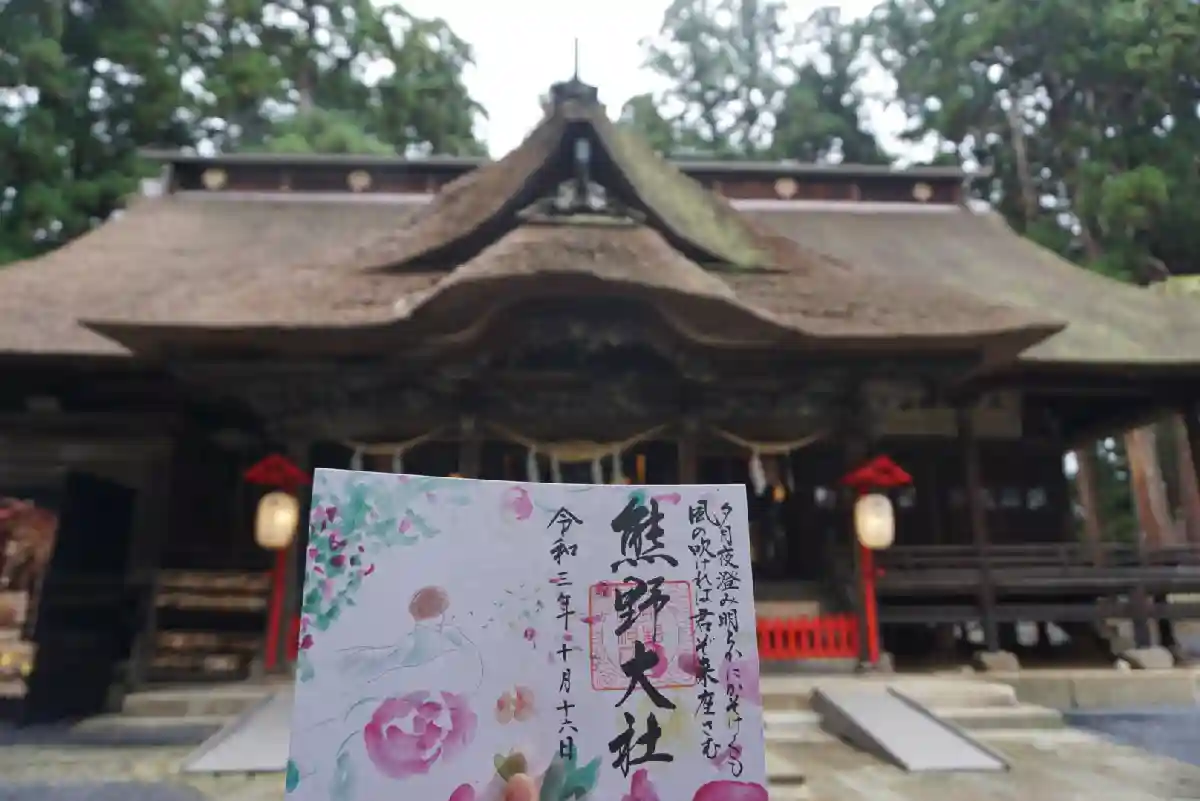 夕月夜澄み明らかにかそけくも
風の吹ければ君ぞ来座さむ
熊野大社
令和三年十月十六日